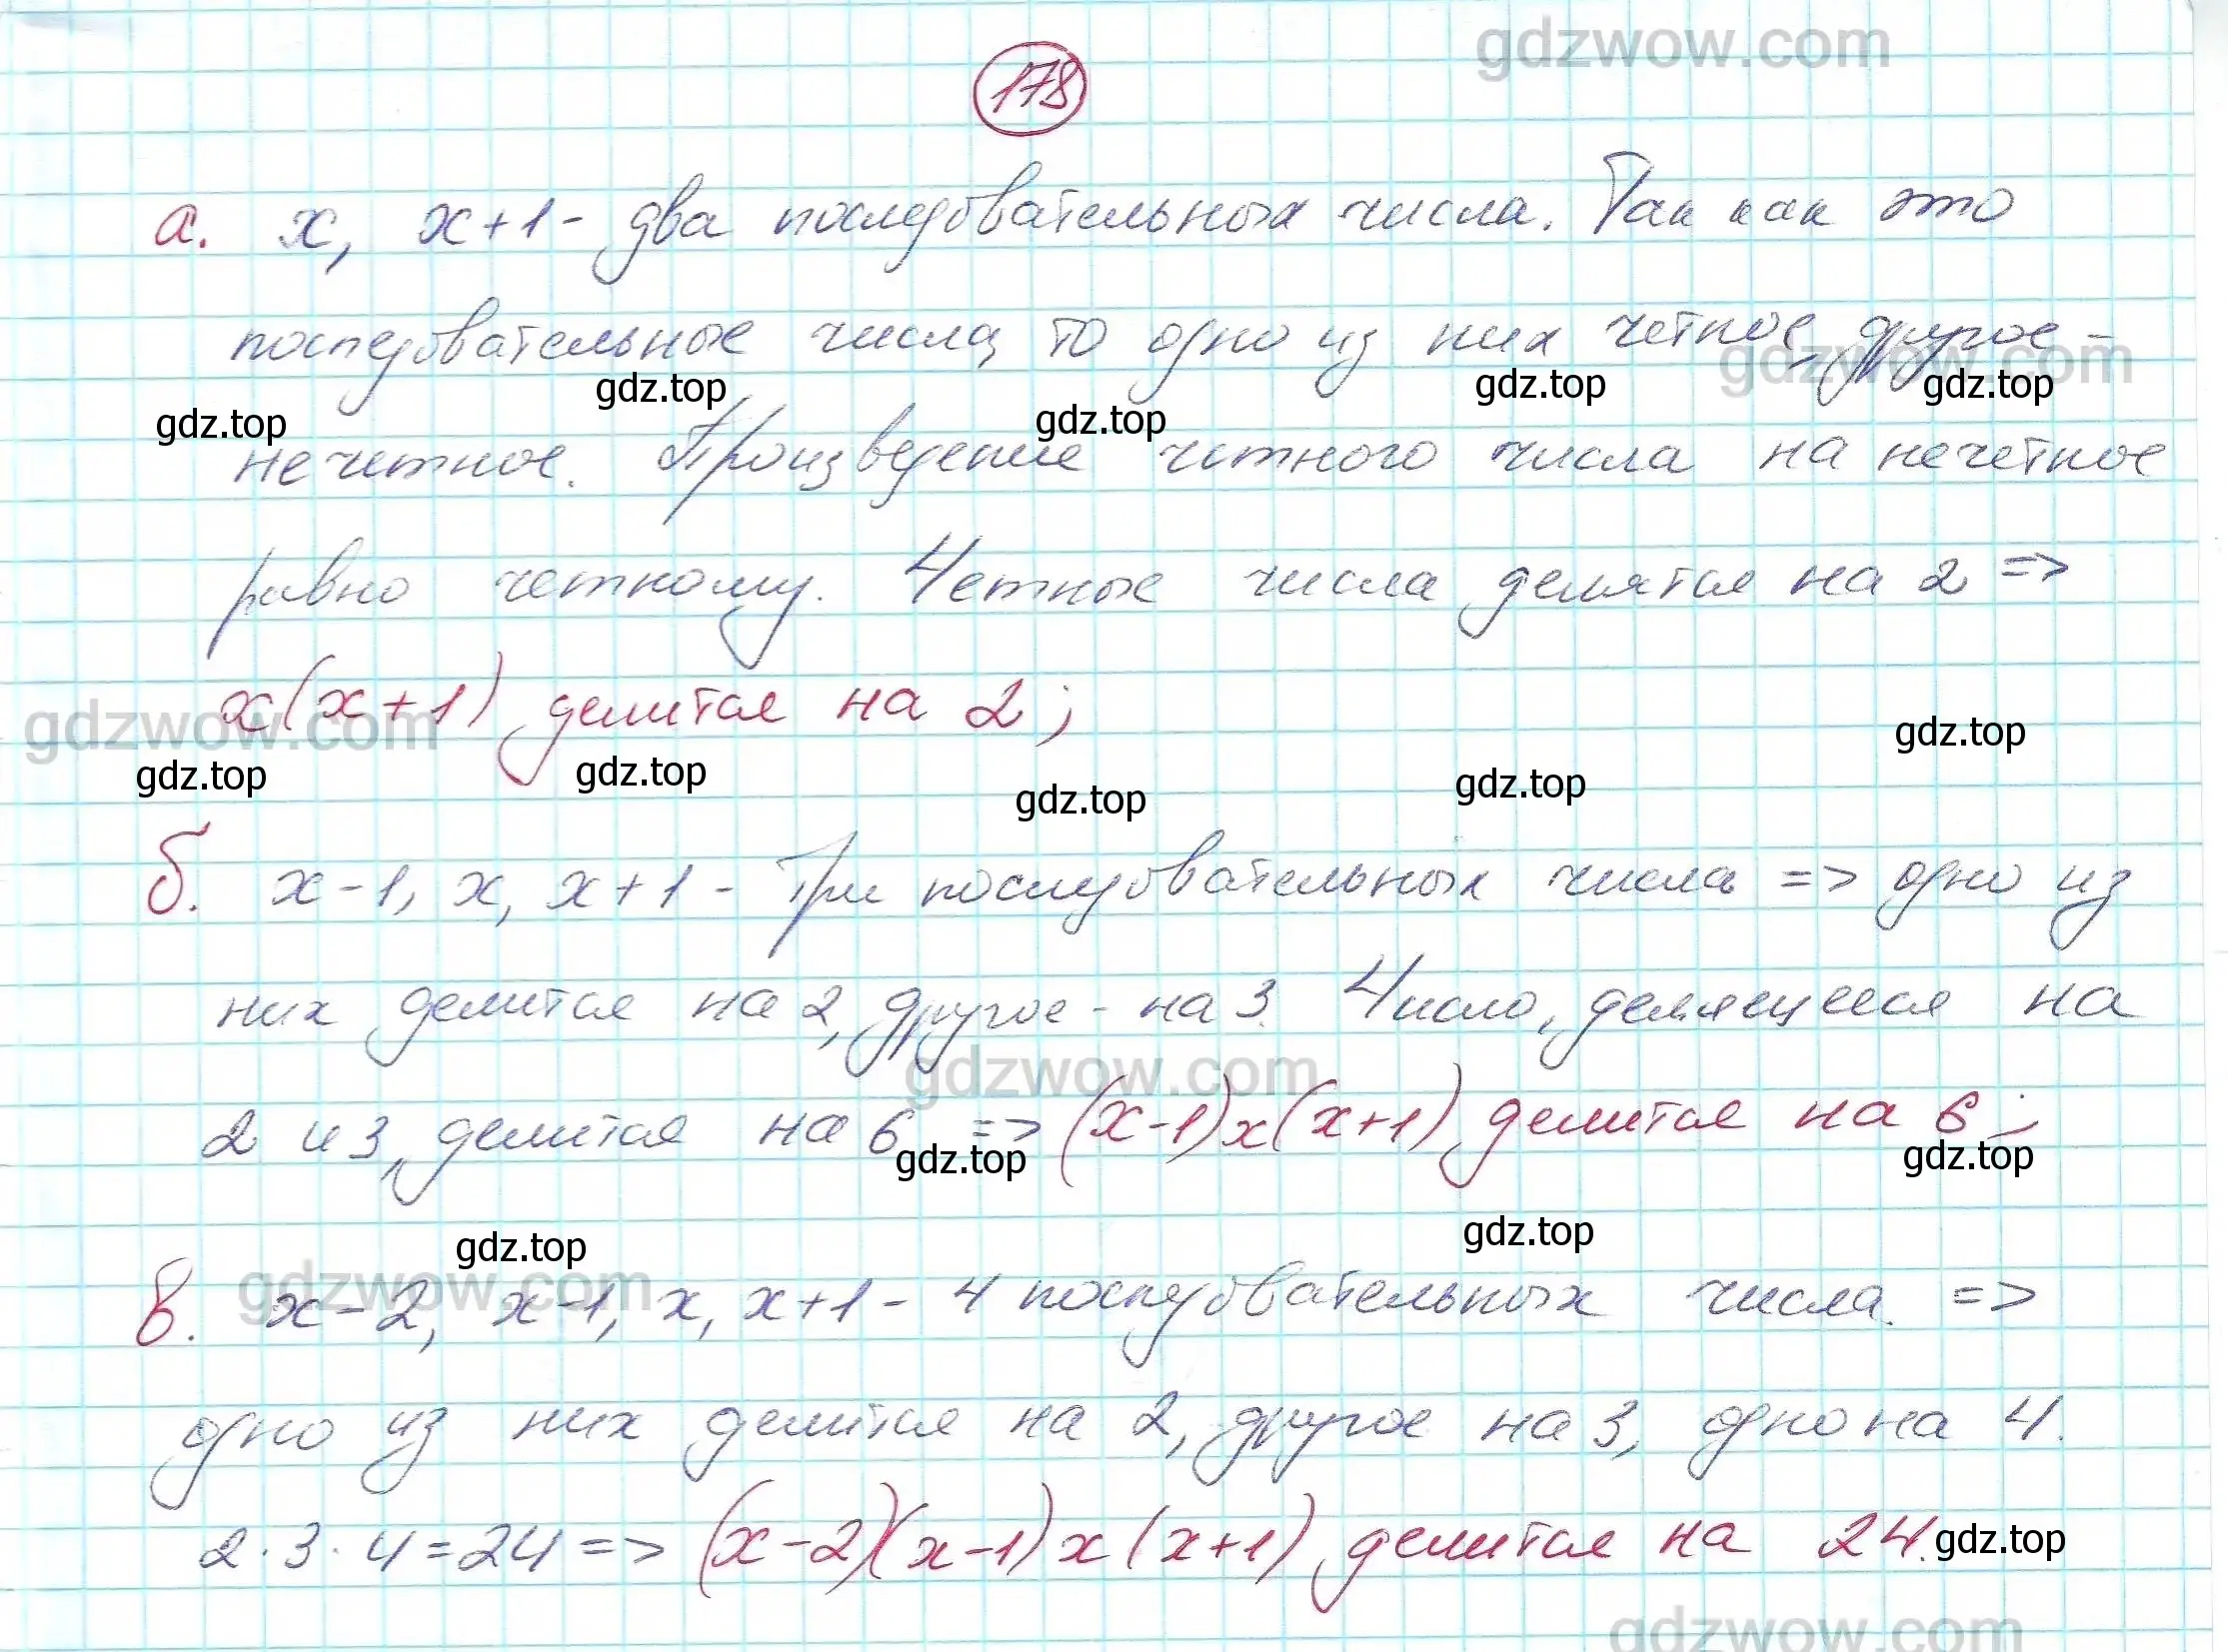 gdzwow.com
178
а. x, x+1 - два последовательных числа. Так как это
последовательные числа, то одно из них четное, другое -
gdzwow.com
gdz.top gdz.top gdz.top gdz.top gdz.top
нечетное. Произведение четного числа на нечетное
равно четному. Четные числа делятся на 2 =>
x(x+1) делится на 2;
gdzwow.com
gdz.top gdz.top gdz.top gdz.top gdz.top
б. x-1, x, x+1 - три последовательных числа => одно из
них делится на 2, другое - на 3. Число, делящееся на
gdzwow.com
2 и 3, делится на 6 => (x-1)x(x+1) делится на 6;
gdz.top gdz.top
gdz.top gdz.top
gdzwow.com
в. x-2, x-1, x, x+1 - 4 последовательных числа. =>
одно из них делится на 2, другое на 3, одно на 4.
2·3·4=24 => (x-2)(x-1)x(x+1) делится на 24.
gdz.top
gdzwow.com